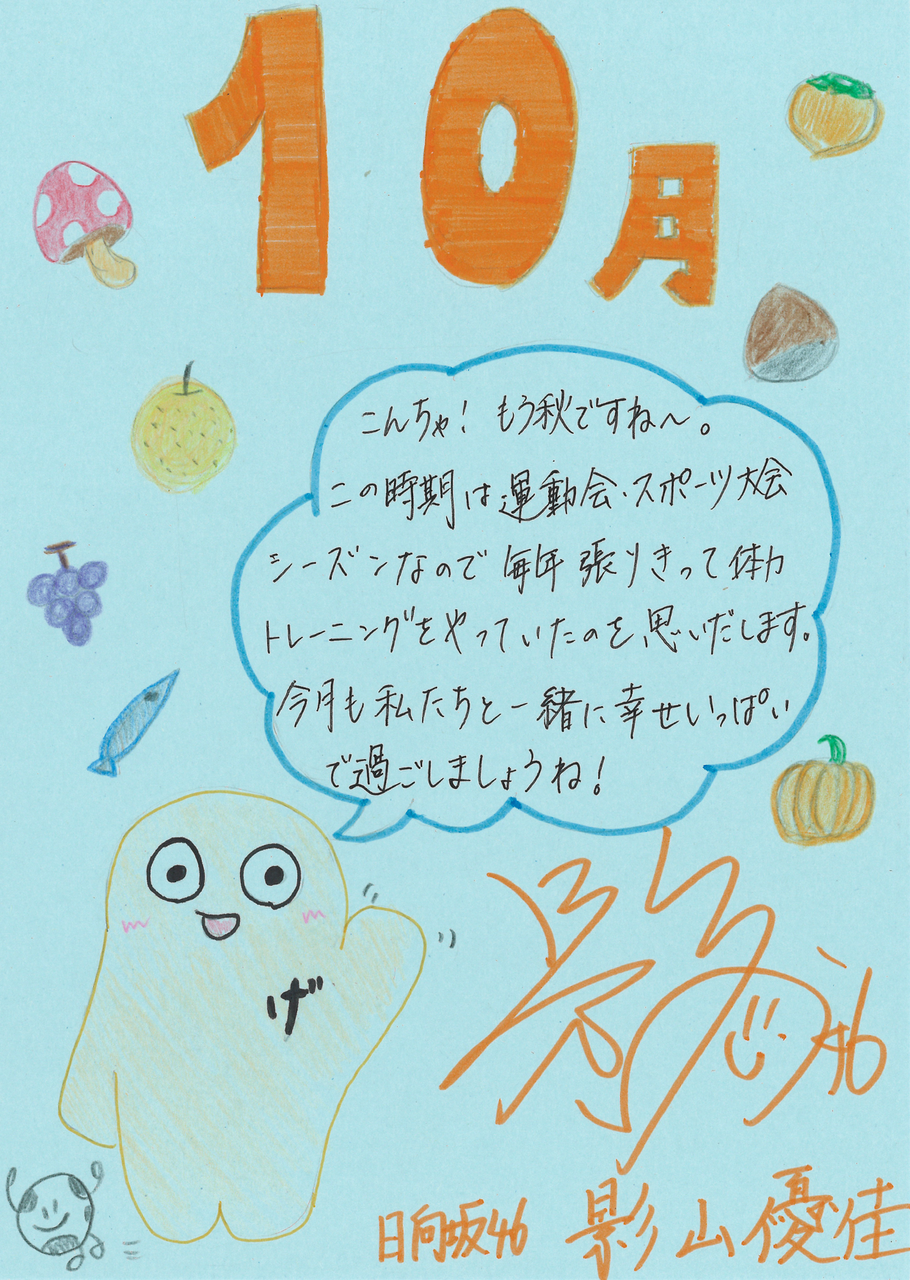 10月
こんちゃ！ もう秋ですね〜。
この時期は運動会・スポーツ大会
シーズンなので毎年張りきって体力
トレーニングをやっていたのを思いだします。
今月も私たちと一緒に幸せいっぱい
で過ごしましょうね！
げ
日向坂46 影山優佳